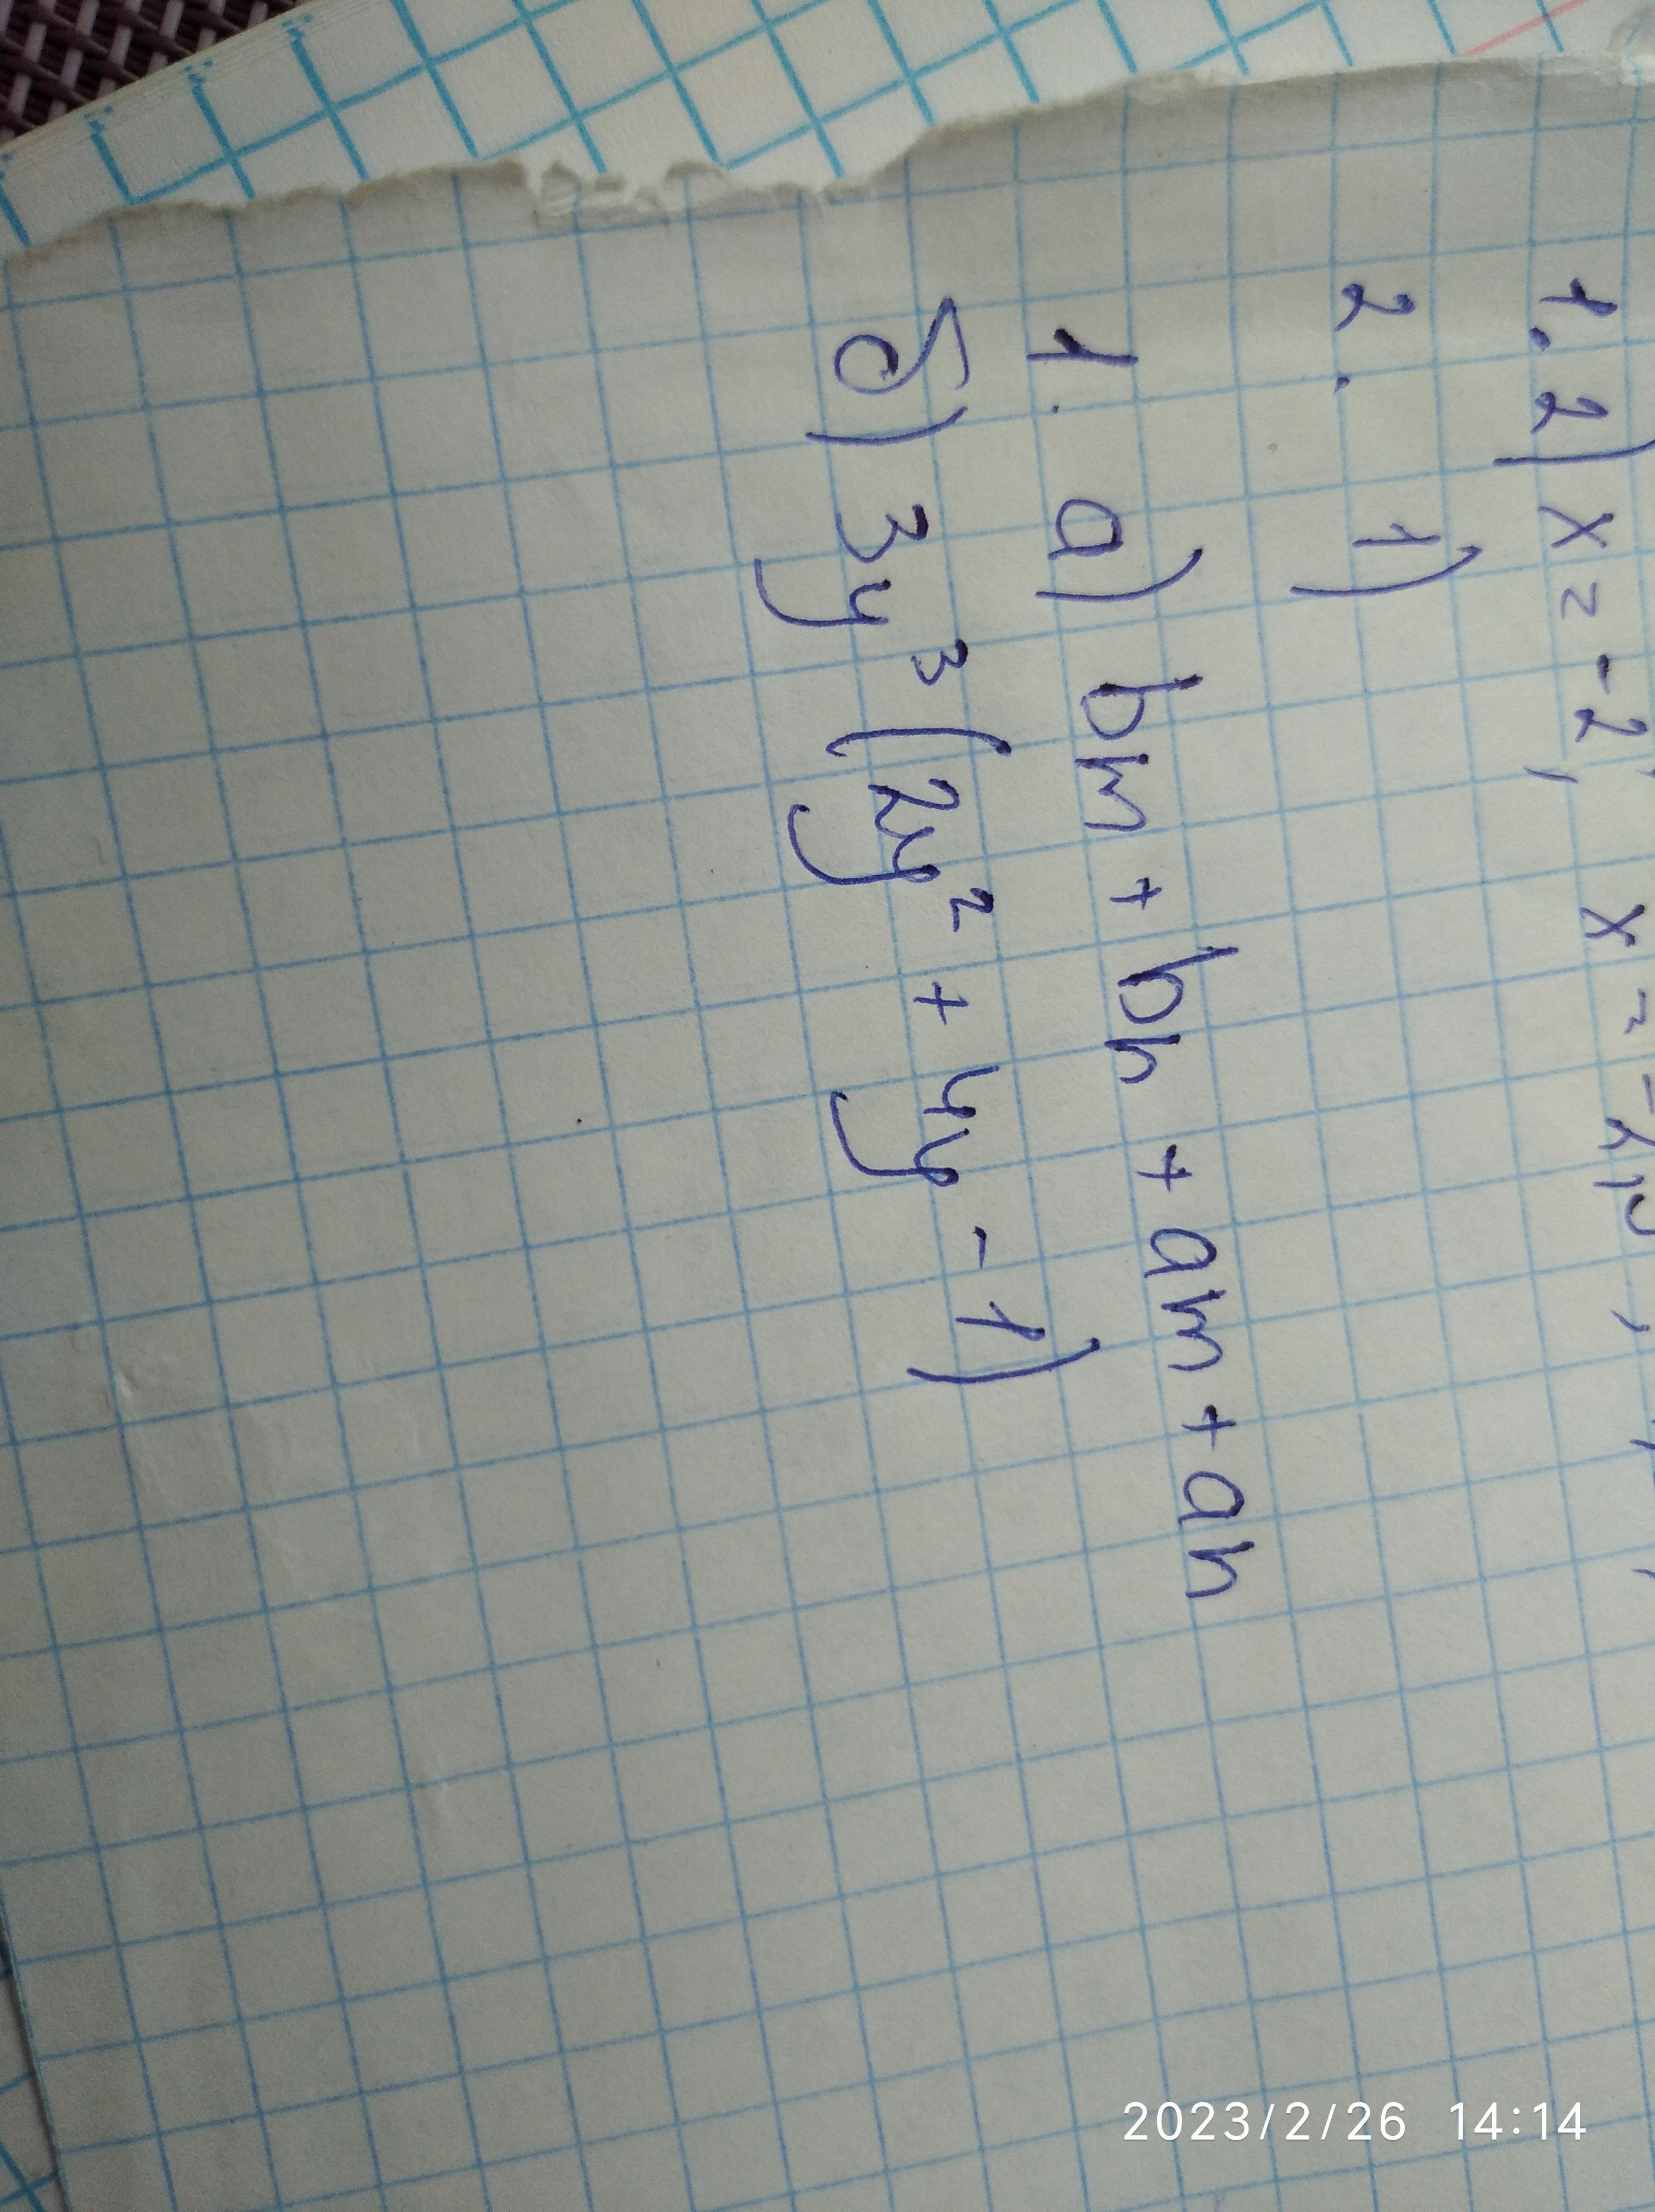 1. 2) x = -2,    x =
2.    1)
1. a) bm + bn + am + an
б) 3y³ (2y² + 4y - 1)
2023/2/26 14:14